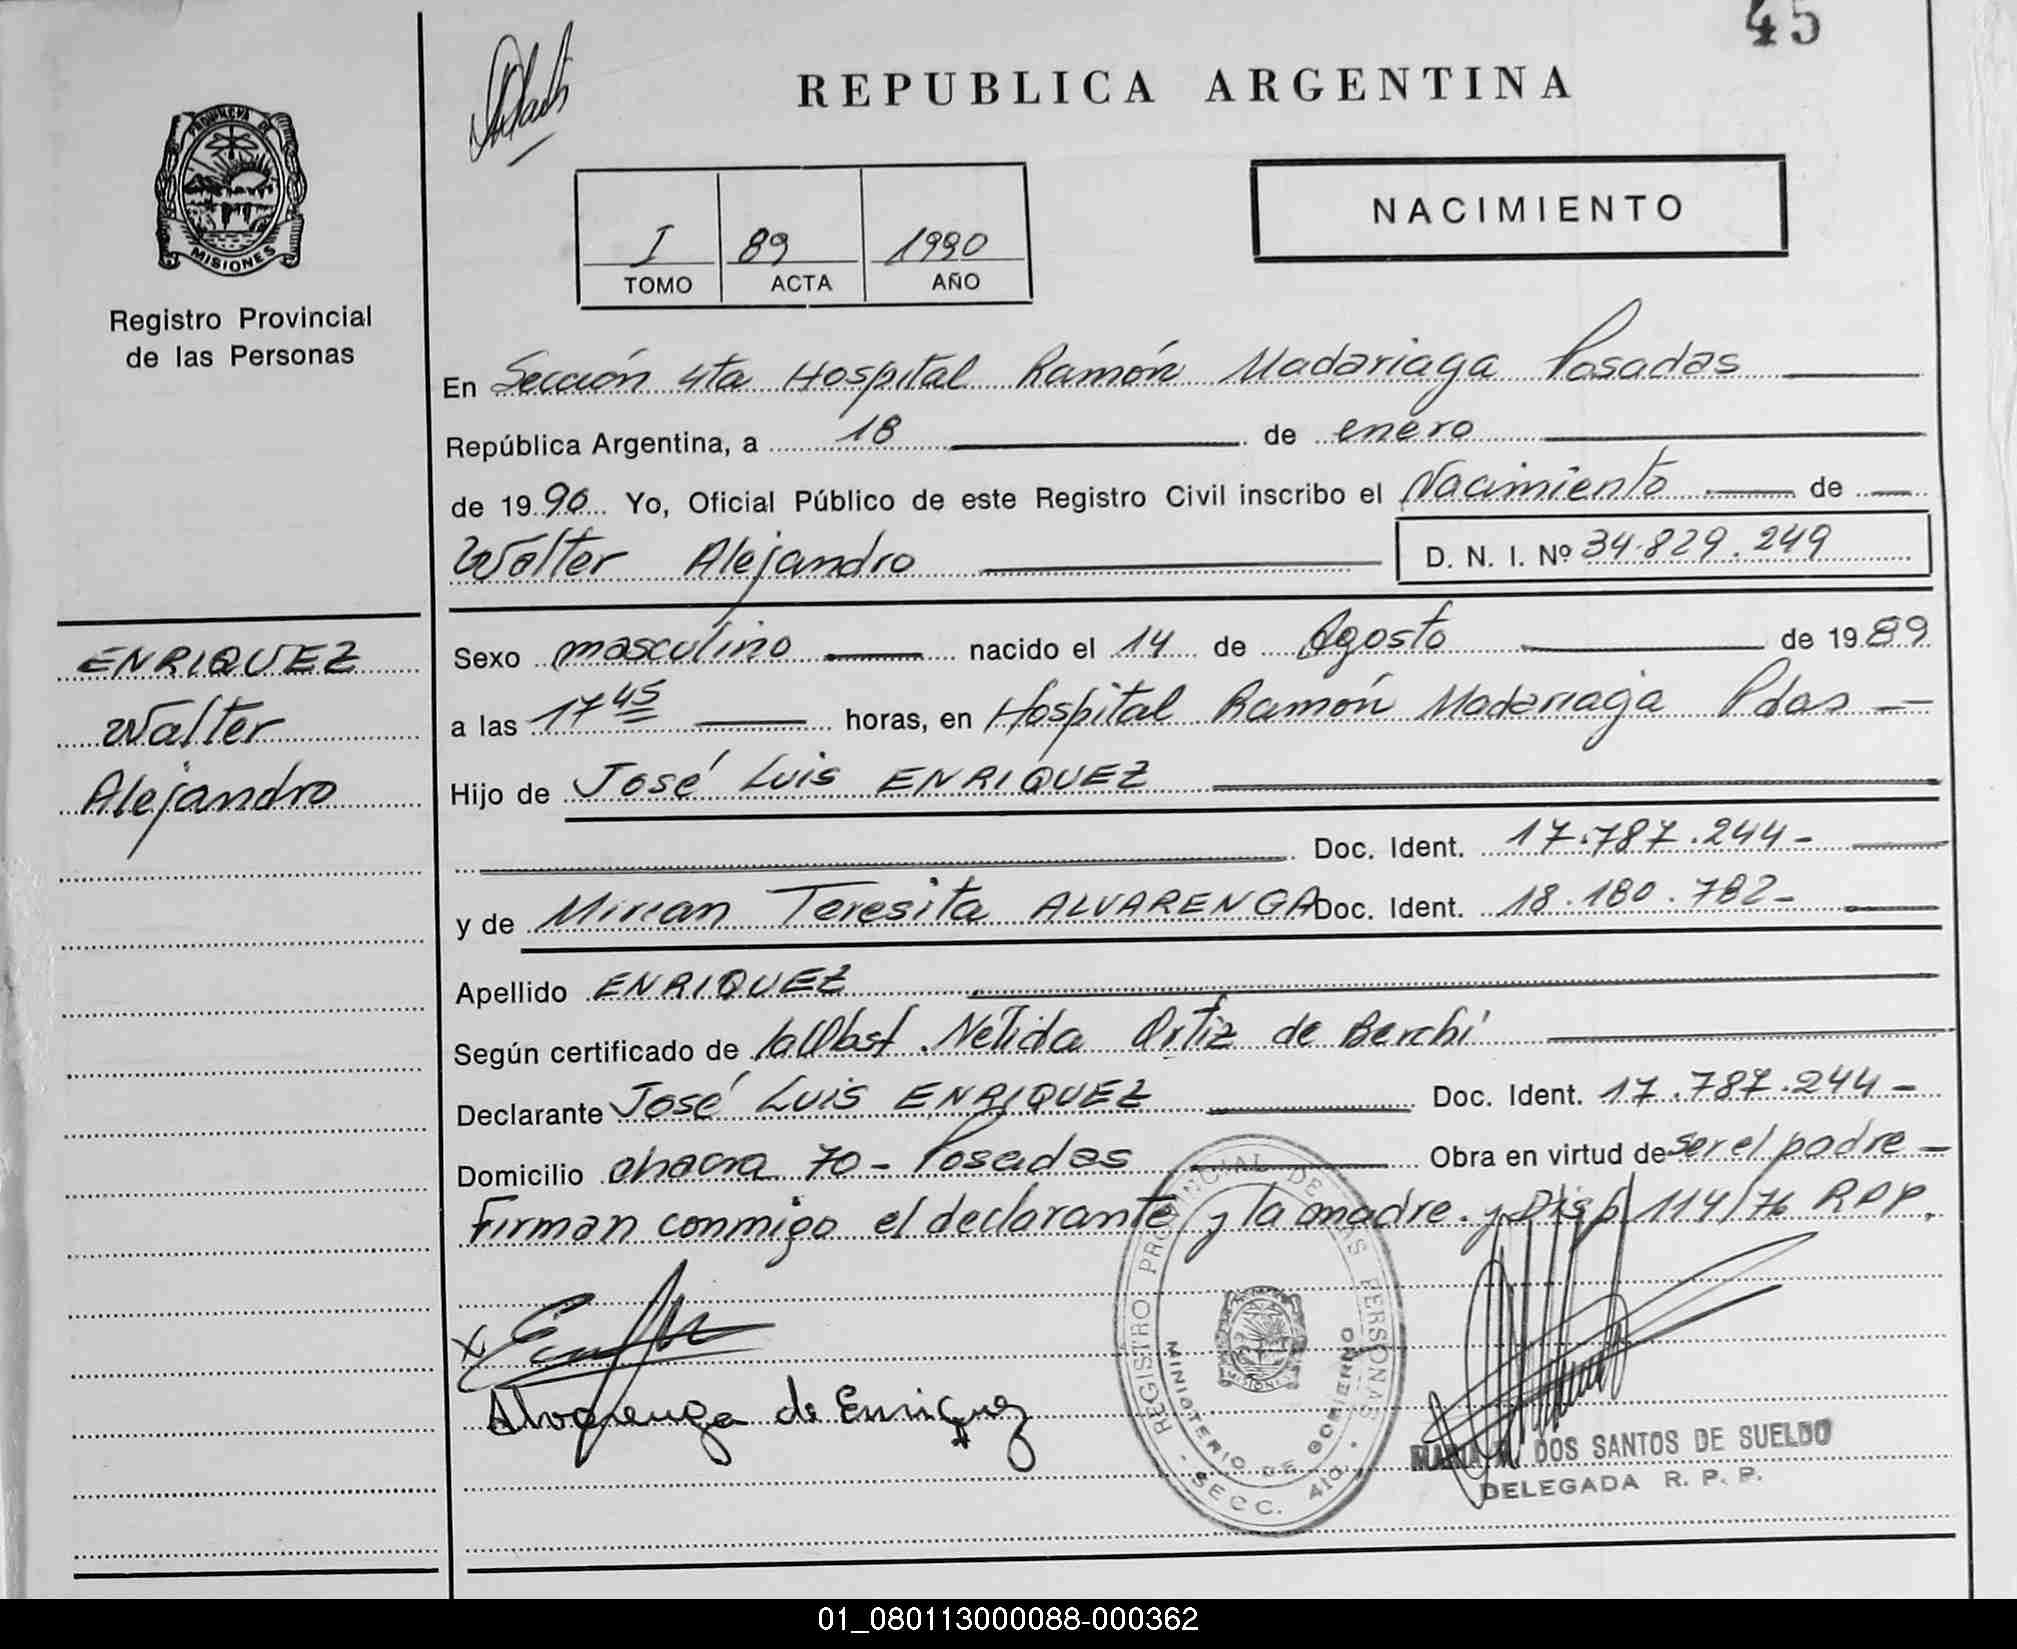 45
REPUBLICA ARGENTINA
PROVINCIA DE
MISIONES
Registro Provincial
de las Personas
I 89 1990
TOMO ACTA AÑO
NACIMIENTO
En Sección 4ta Hospital Ramón Madariaga Posadas
República Argentina, a 18 de enero
de 1990 Yo, Oficial Público de este Registro Civil inscribo el Nacimiento de
Walter Alejandro D. N. I. Nº 34.829.249
ENRIQUEZ
Walter
Alejandro
Sexo masculino nacido el 14 de Agosto de 1989
a las 17 45 horas, en Hospital Ramón Madariaga Pdas
Hijo de José Luis ENRIQUEZ
Doc. Ident. 17.787.244-
y de Mirian Teresita ALVARENGA Doc. Ident. 18.180.782-
Apellido ENRIQUEZ
Según certificado de la Obst. Nélida Ortiz de Berchi
Declarante José Luis ENRIQUEZ Doc. Ident. 17.787.244-
Domicilio chacra 70 - Posadas Obra en virtud de ser el padre
Firman conmigo el declarante y la madre. y Disp. 114/76 RPP.
Alvarenga de Enriquez
REGISTRO PROVINCIAL DE LAS PERSONAS
MINISTERIO DE GOBIERNO
SECC. 4ta.
MISIONES
MARIA DOS SANTOS DE SUELDO
DELEGADA R. P. P.
01_080113000088-000362